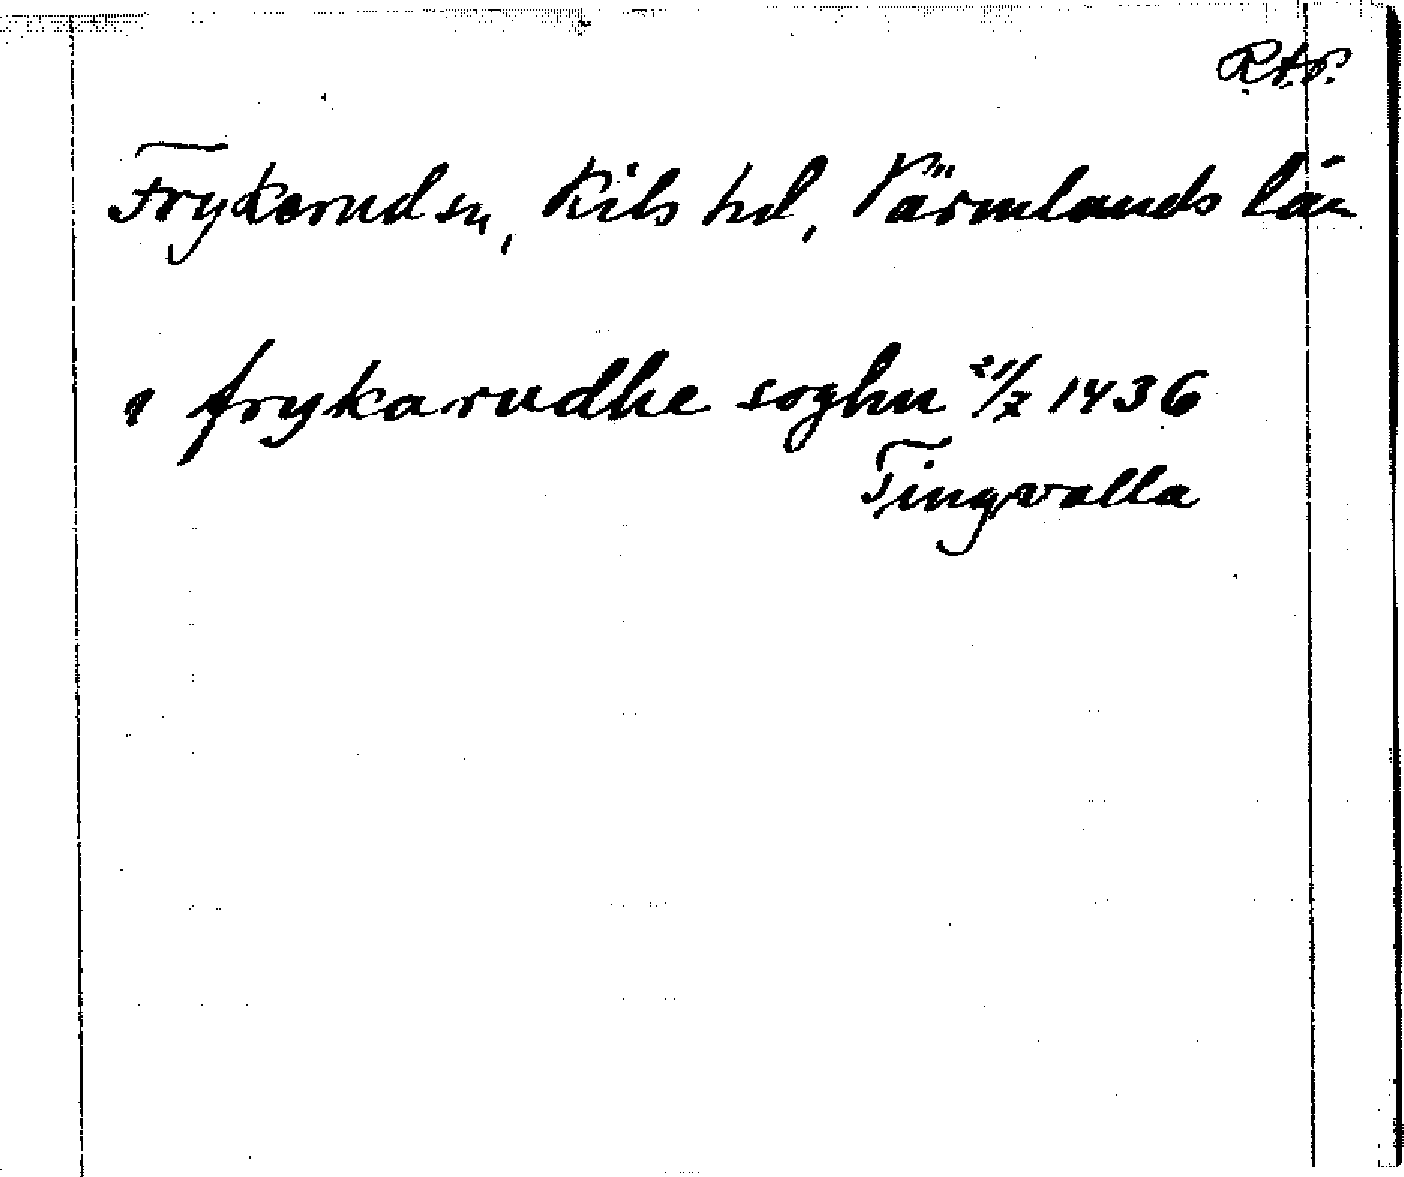 R.A.P.
Frykerud sn, Kils hd, Värmlands län
i frykarudhe soghn 21/7 1436
Tingvalla